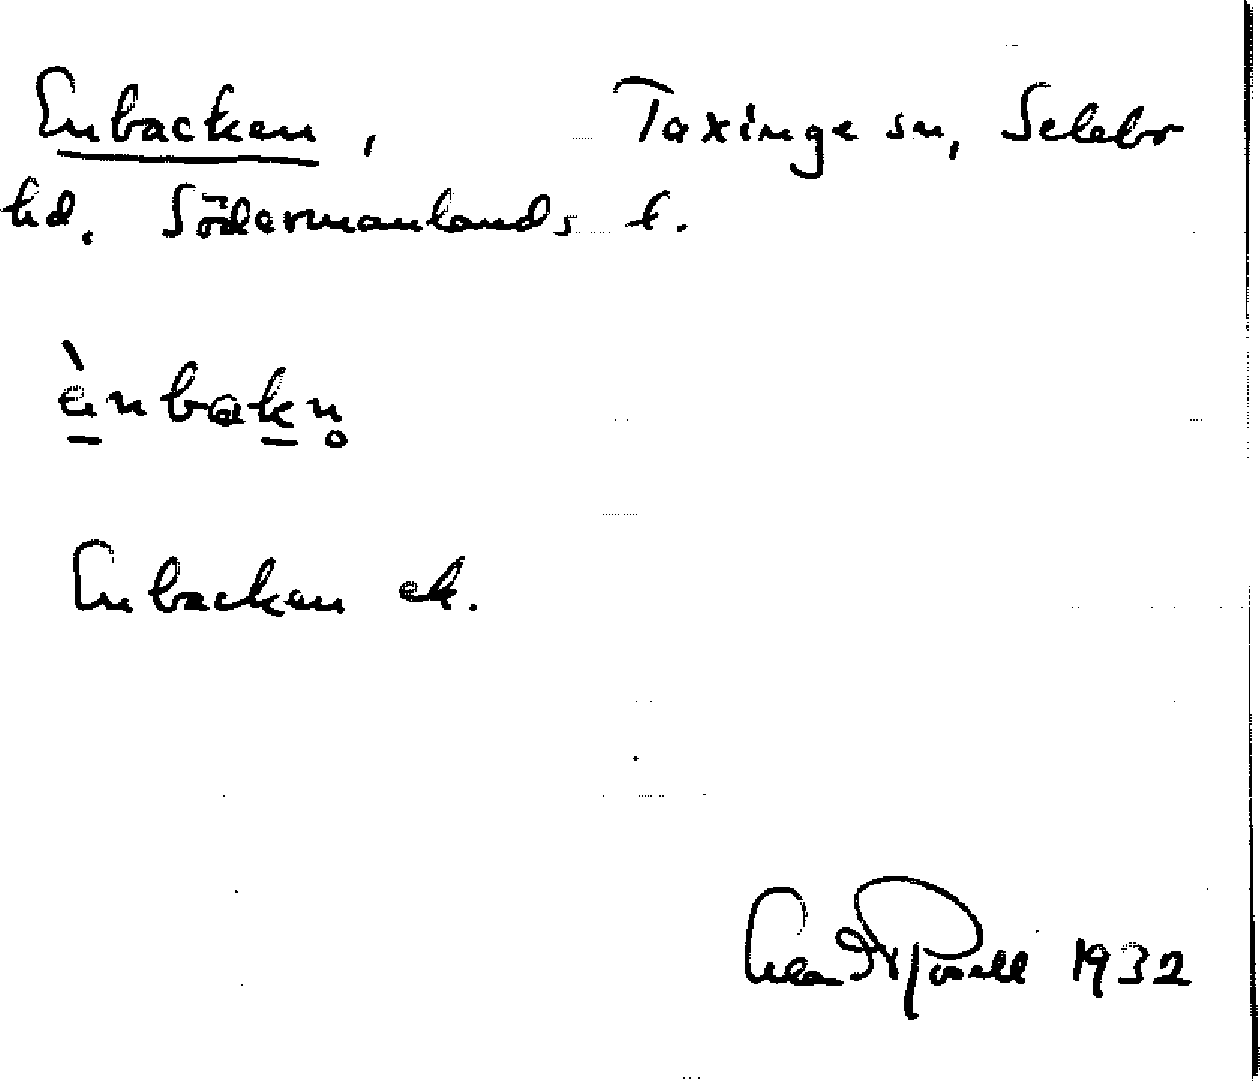 Enbacken, Taxinge sn, Selebo
hd. Södermanlands l.
ènbakn̥
Enbacken ek.
1932